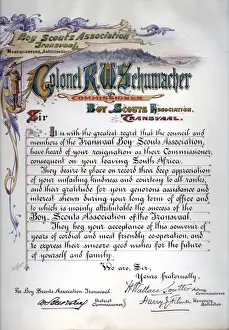 Boy Scouts Association
Transvaal
Headquarters, Johannesburg
Colonel R. W. Schumacher
COMMISSIONER
BOY SCOUTS ASSOCIATION,
TRANSVAAL.
Sir
It is with the greatest regret that the council and
members of the Transvaal Boy Scouts Association,
have heard of your resignation as their Commissioner,
consequent on your leaving South Africa.
They desire to place on record their deep appreciation
of your unfailing kindness and courtesy to all ranks,
and their gratitude for your generous assistance and
interest shewn during your long term of office and
to which is mainly attributable the success of the
Boy Scouts Association of the Transvaal.
They beg your acceptance of this souvenir of
years of cordial and most friendly cooperation, and
to express their sincere good wishes for the future
of yourself and family.
We are, Sir,
Yours fraternally,
For Boy Scouts Association Transvaal.
Acting Commissioner
District Commissioner
Honorary Secretary